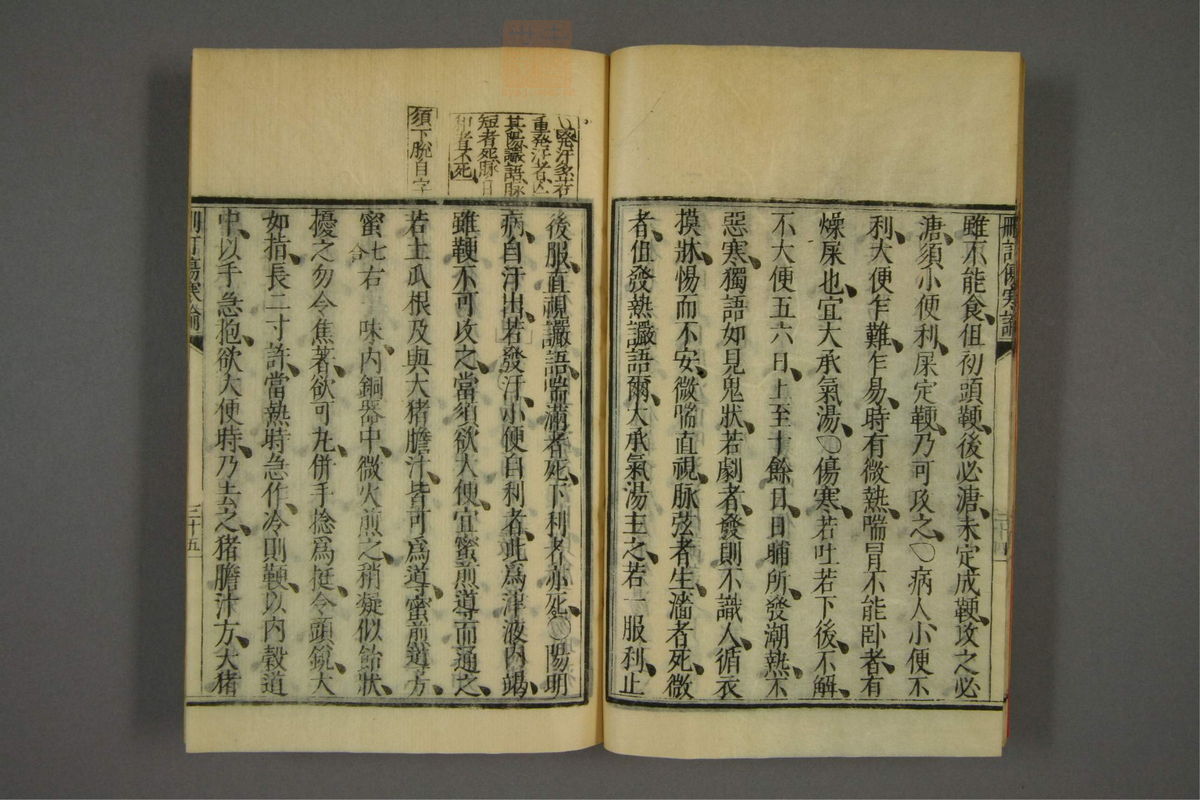 刪訂傷寒論
雖不能食、但初頭鞕、後必溏、未定成鞕、攻之必
溏、須小便利、屎定鞕、乃可攻之、○病人小便不
利、大便乍難、乍易、時有微熱、喘冒不能卧者、有
燥屎也、宜大承氣湯、○傷寒若吐若下後、不解、
不大便五六日、上至十餘日、日晡所、發潮熱、不
惡寒、獨語如見鬼狀、若劇者、發則不識人、循衣
摸牀、惕而不安、微喘直視、脉弦者生、濇者死、微
者、但發熱讝語爾、大承氣湯主之、若一服利、止
發汗多若
重發汗者亡
其陽讝語、脉
短者死、脉自
和者不死
須下脫自字
後服、直視讝語、喘滿者死、下利者亦死、○陽明
病、自汗出、若發汗、小便自利者、此爲津液內竭、
雖鞕不可攻之、當須欲大便、宜蜜煎導而通之、
若土瓜根及與大猪膽汁、皆可爲導、蜜煎導方、
蜜七合右一味、內銅器中、微火煎之、稍凝似飴狀、
擾之勿令焦著、欲可丸、併手捻爲挺、令頭銳、大
如指、長二寸許、當熱時急作、冷則鞕、以內穀道
中、以手急抱、欲大便時、乃去之、猪膽汁方、大猪
刪訂傷寒論
三十五